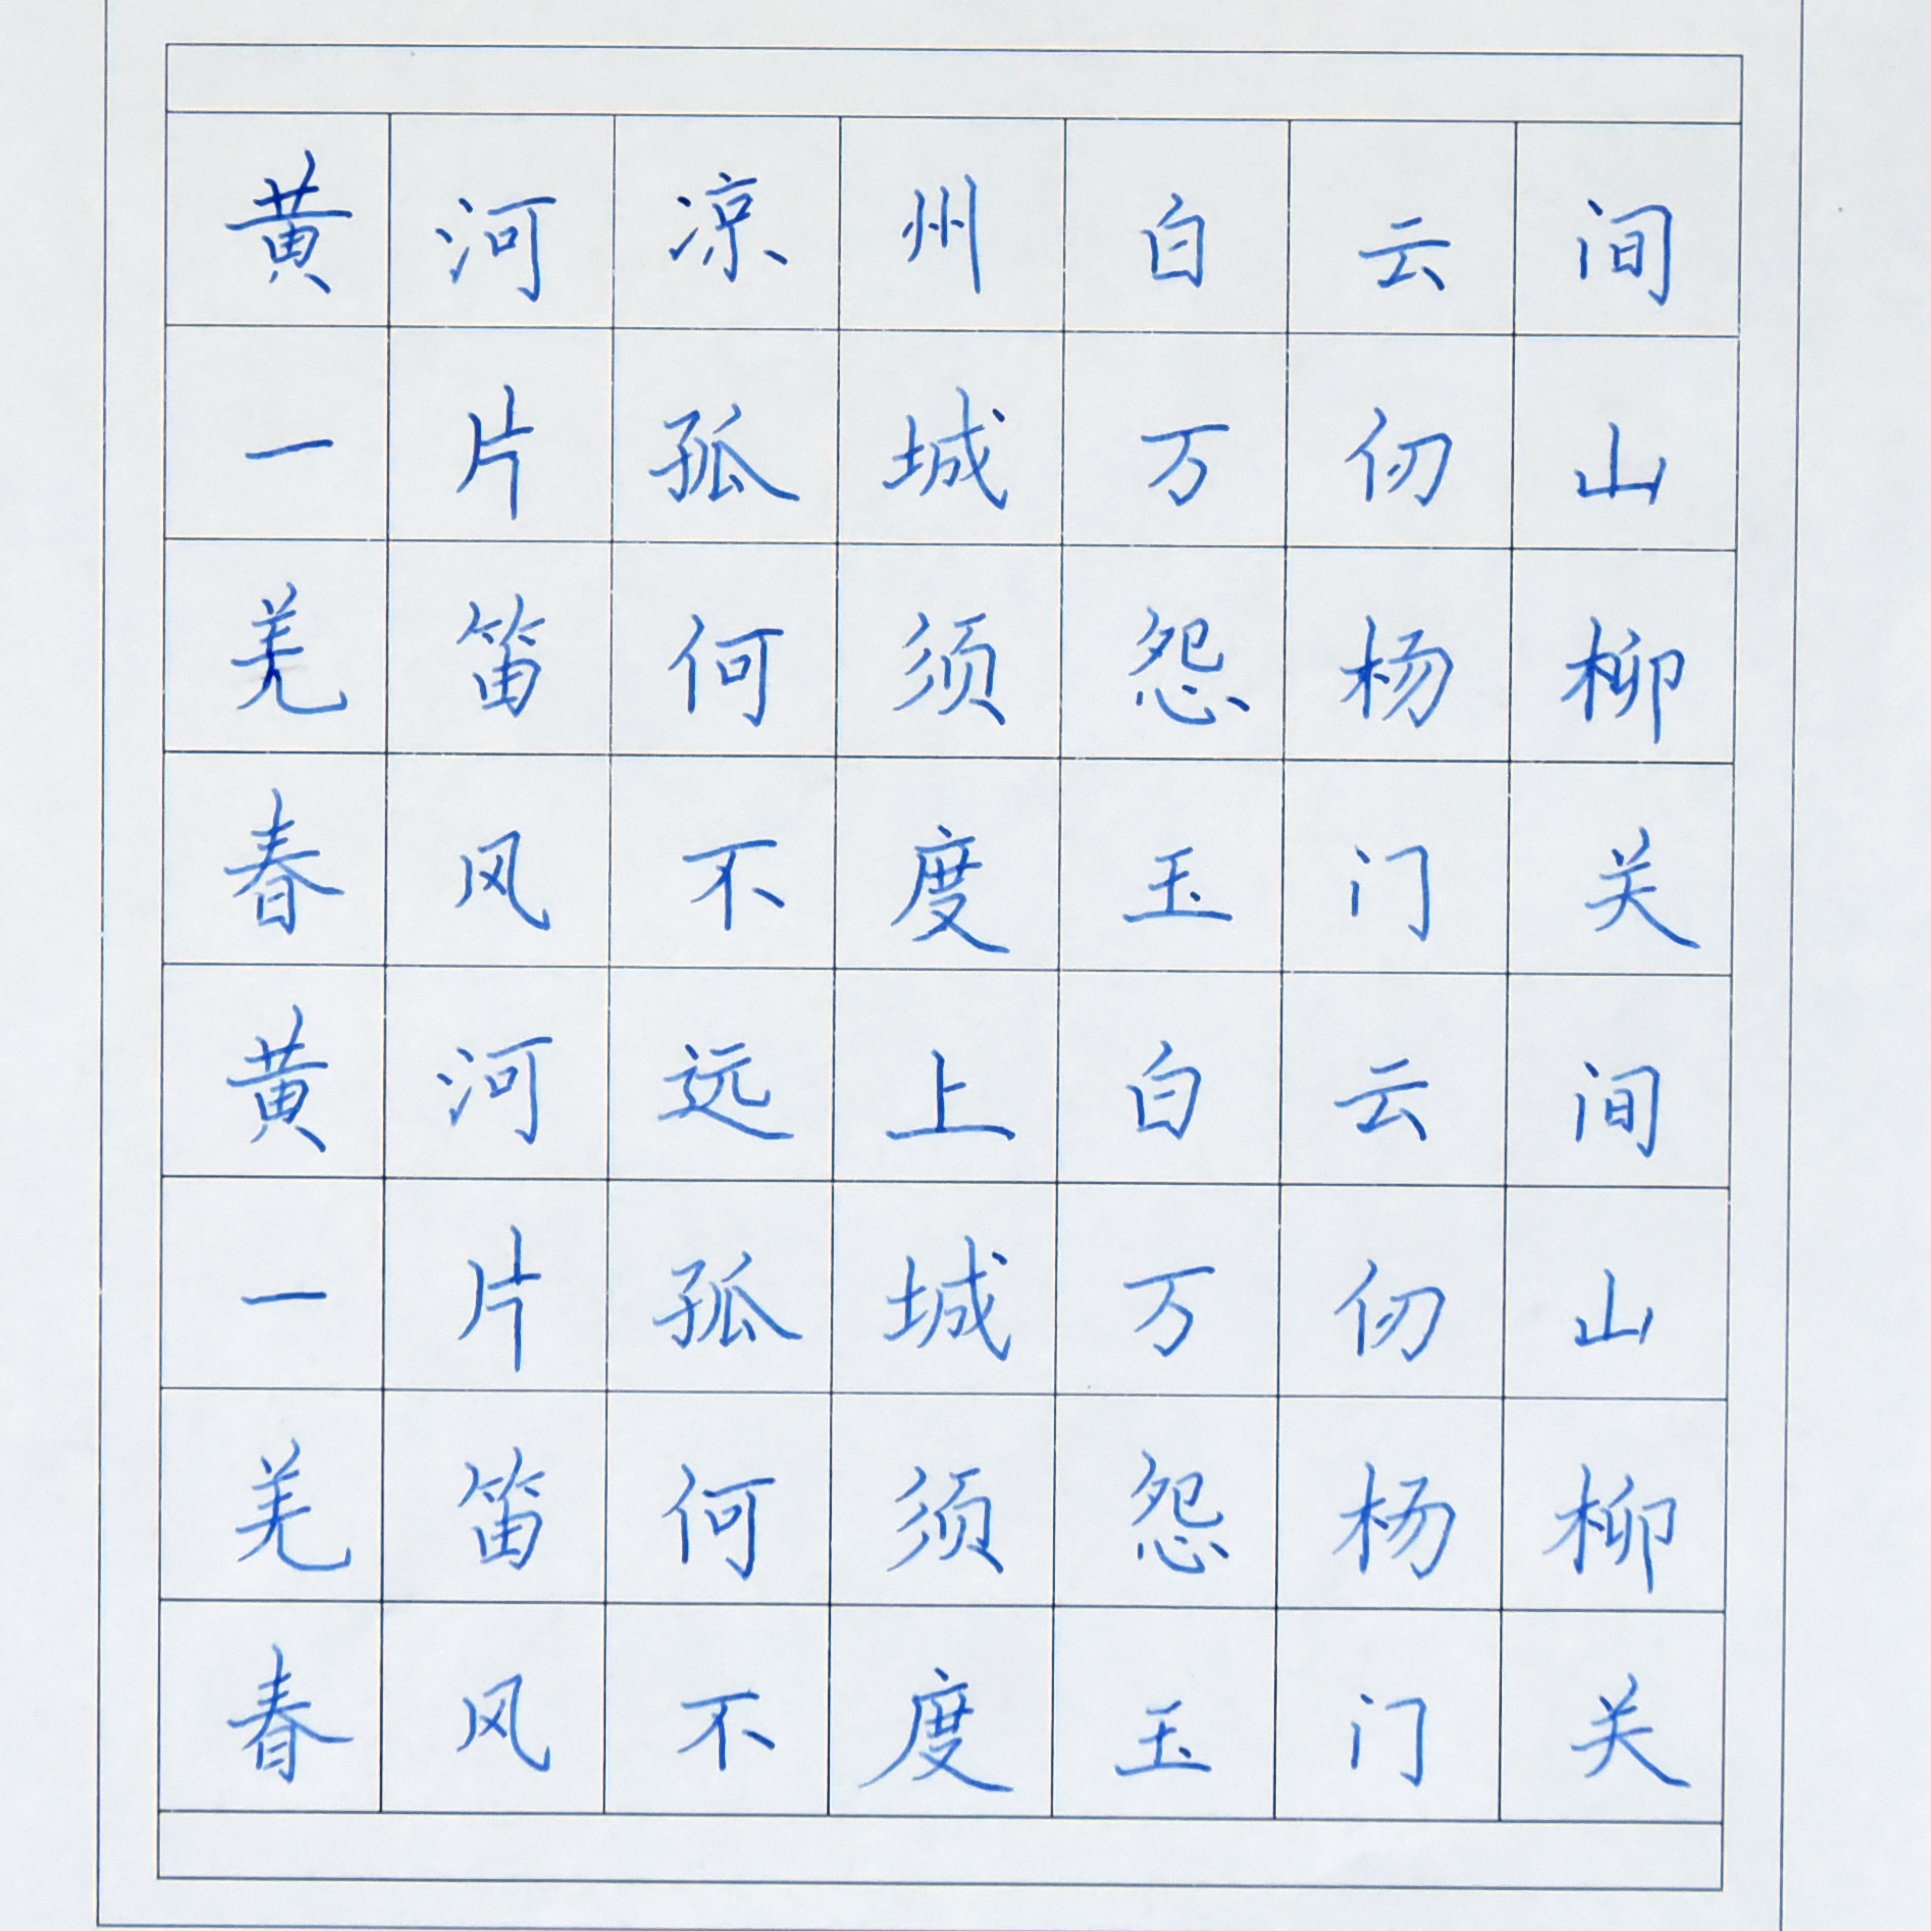 黄河凉州白云间
一片孤城万仞山
羌笛何须怨杨柳
春风不度玉门关
黄河远上白云间
一片孤城万仞山
羌笛何须怨杨柳
春风不度玉门关